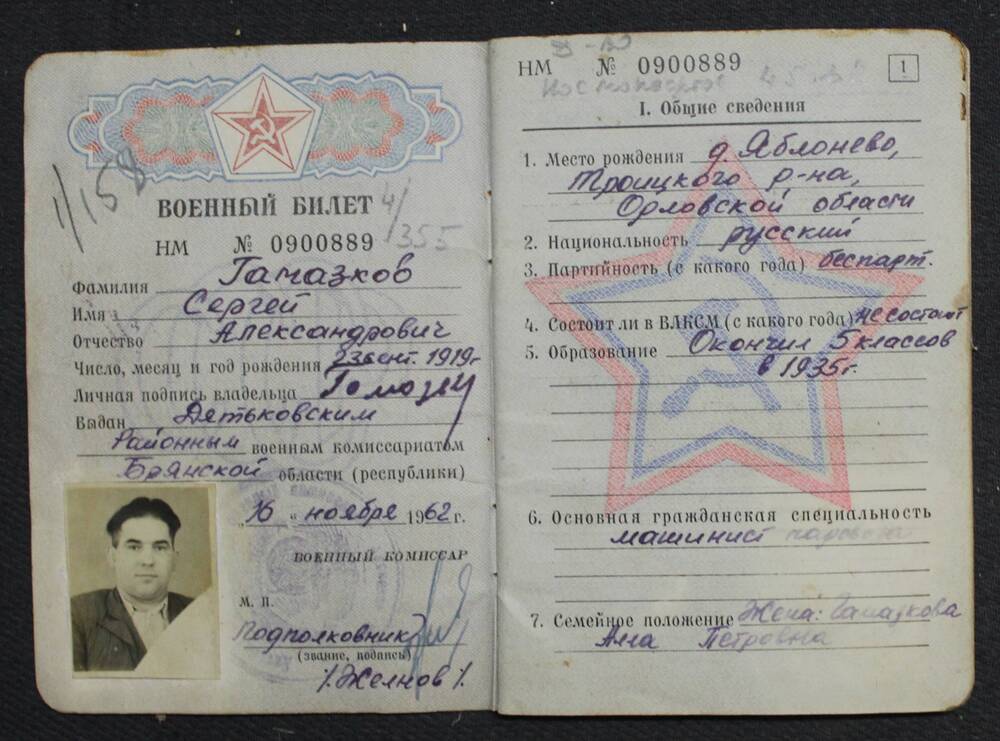 1/158
ВОЕННЫЙ БИЛЕТ
4/355
НМ № 0900889
Фамилия Гамазков
Имя Сергей
Отчество Александрович
Число, месяц и год рождения 23 сент. 1919г
Личная подпись владельца
Выдан Дятьковским
Районным военным комиссариатом
Брянской области (республики)
"16" ноября 1962 г.
ВОЕННЫЙ КОМИССАР
М. П.
Подполковник
(звание, подпись)
/.Желнов/.
НМ № 0900889
1
I. Общие сведения
1. Место рождения д. Яблонево,
Троицкого р-на,
Орловской области
2. Национальность русский
3. Партийность (с какого года) беспарт.
4. Состоит ли в ВЛКСМ (с какого года) не состоит
5. Образование Окончил 5 классов
в 1935г.
6. Основная гражданская специальность
машинист паровоза
7. Семейное положение Жена: Гамазкова
Анна Петровна